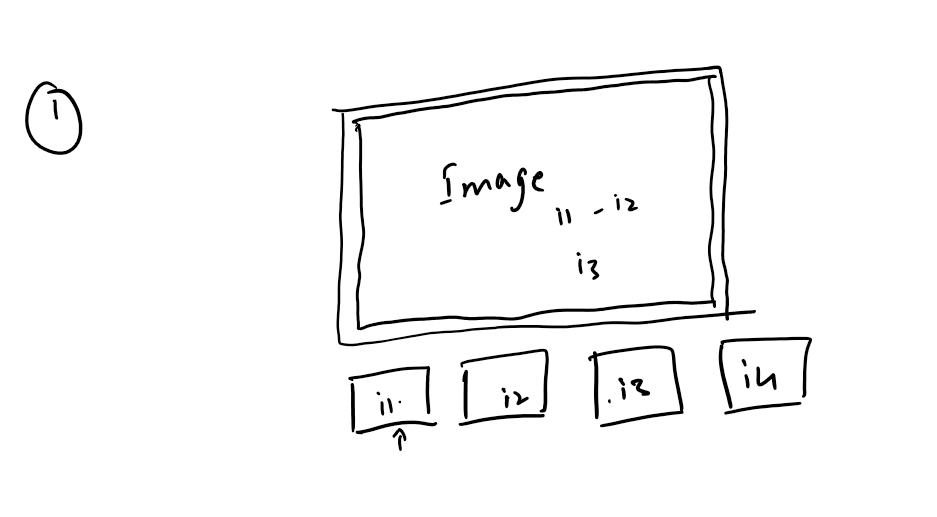 1
Image
i1 - i2
i3
i1. i2 .i3 i4